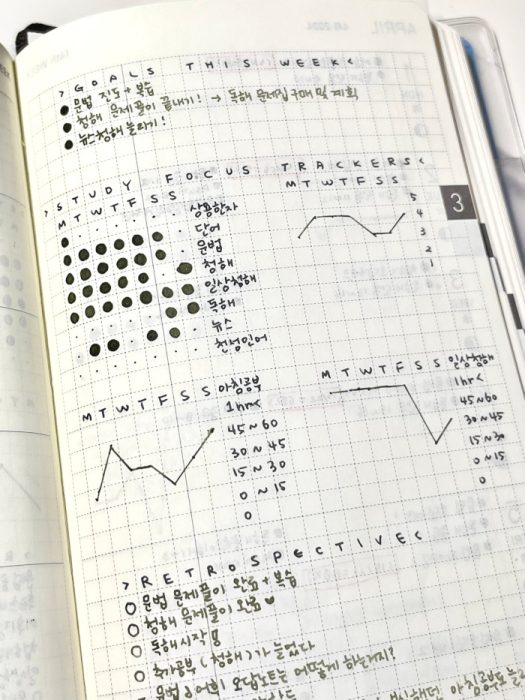 > GOALS THIS WEEK <
● 문법 진도 + 복습
● 청해 문제풀이 끝내기! → 독해 문제집 구매 및 계획
● 뉴스청해 늘리기!
> STUDY FOCUS TRACKERS <
M T W T F S S
상용한자
단어
문법
청해
일상청해
독해
뉴스
M T W T F S S
5
4
3
2
1
3
M T W T F S S 아침공부
1hr<
45~60
30~45
15~30
0~15
0
M T W T F S S 일상청해
1hr<
45~60
30~45
15~30
0~15
0
> RETROSPECTIVE <
○ 문법 문제풀이 완료 + 복습
○ 청해 문제풀이 완료 ♥
○ 독해시작
○ 추가공부 (청해) 가 늘었다
오답노트는 어떻게 하는거지?